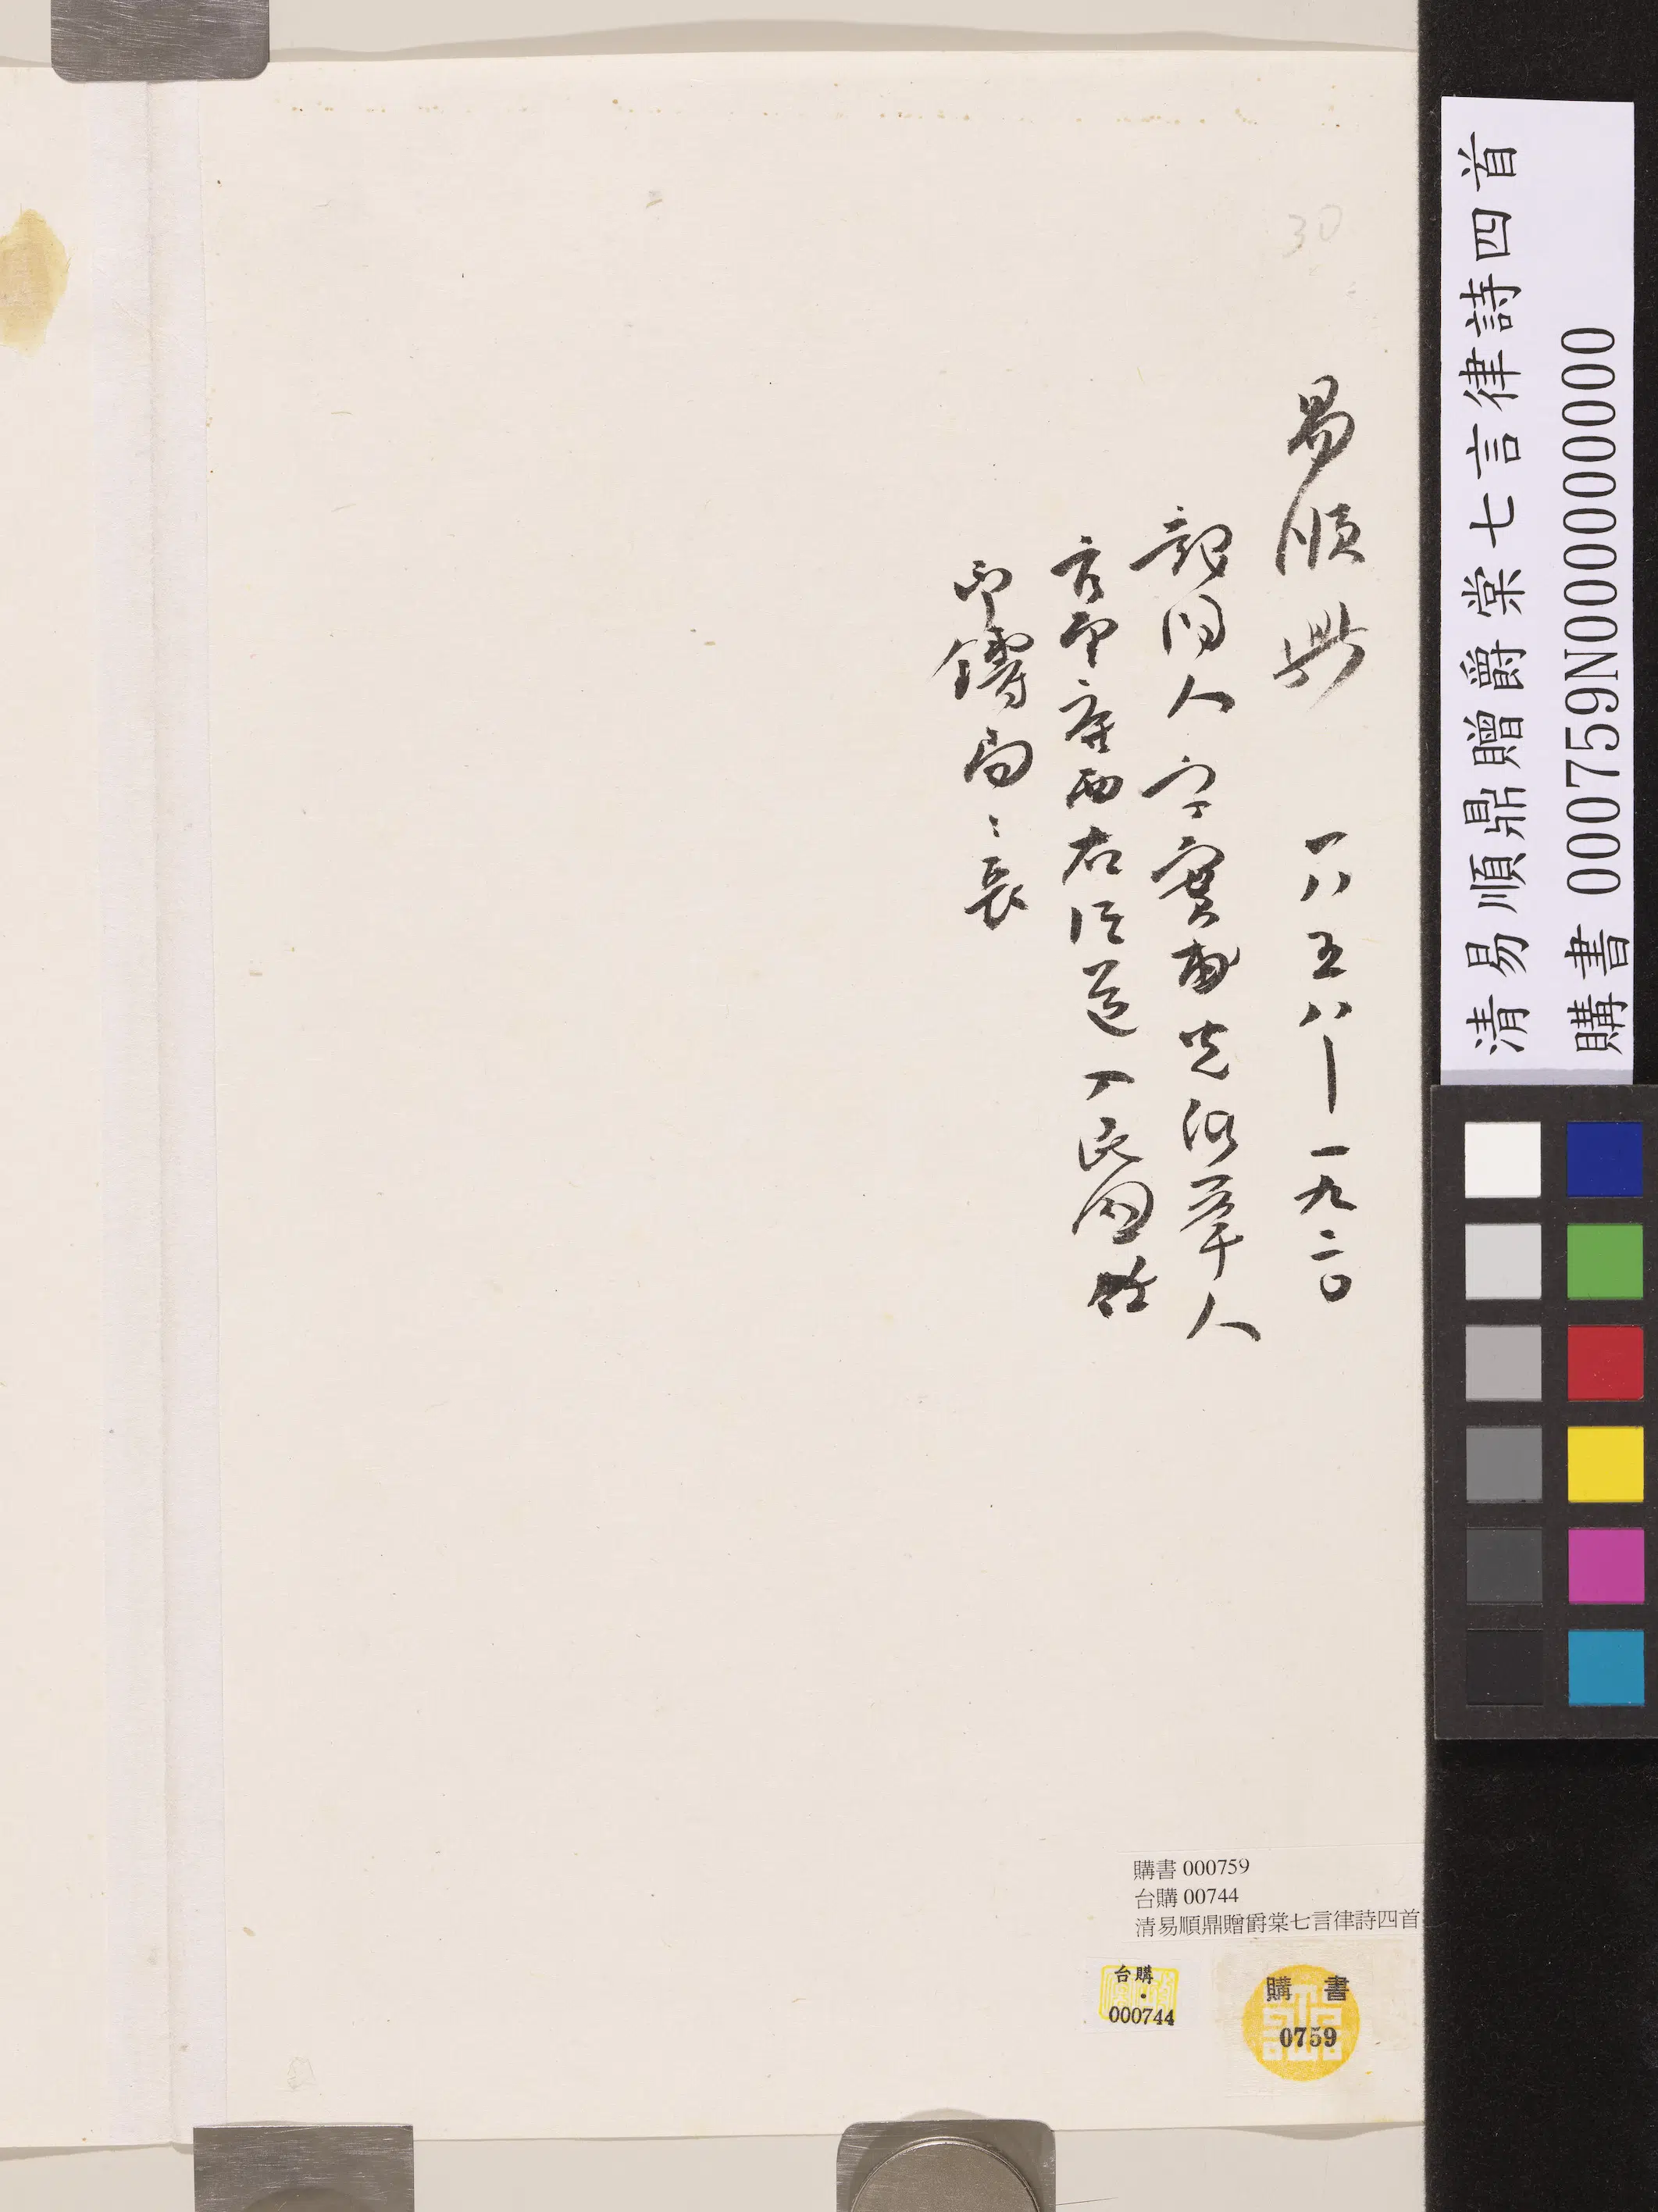 30
易順鼎 一八五八—一九二〇
龍陽人字實甫光緒舉人
官廣西右江道入民國任
印鑄局々長
清易順鼎贈爵棠七言律詩四首
購書 000759N000000000
購書 000759
台購 00744
清易順鼎贈爵棠七言律詩四首
台購
000744
購書
0759